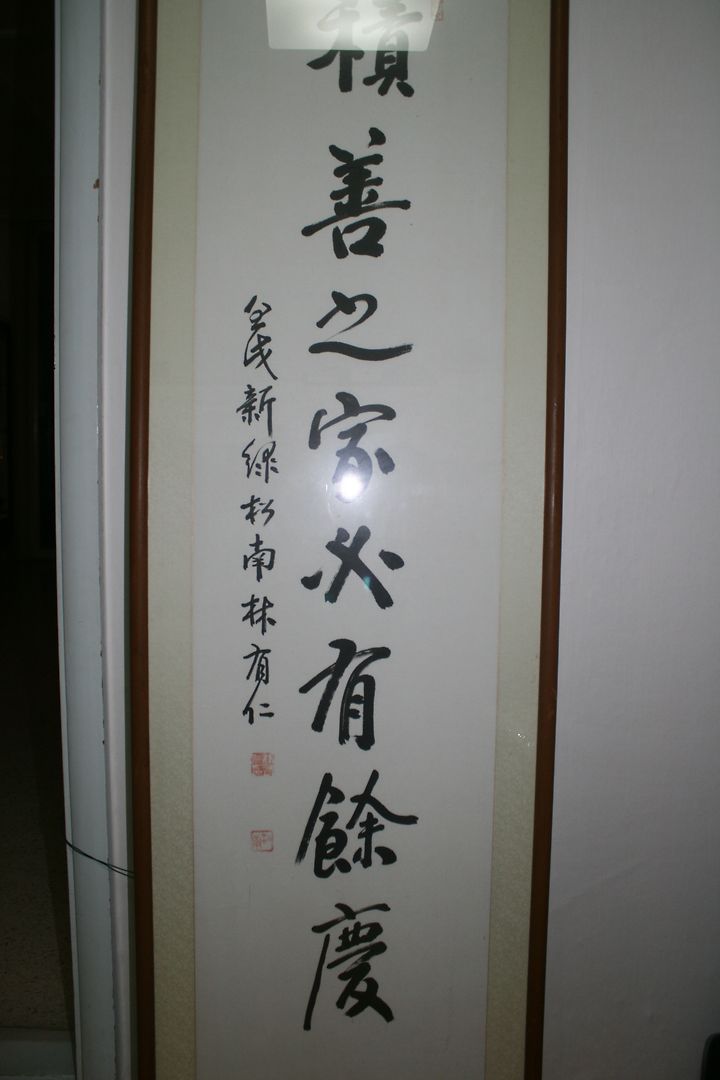 積善之家必有餘慶
戌新綠松南林有仁